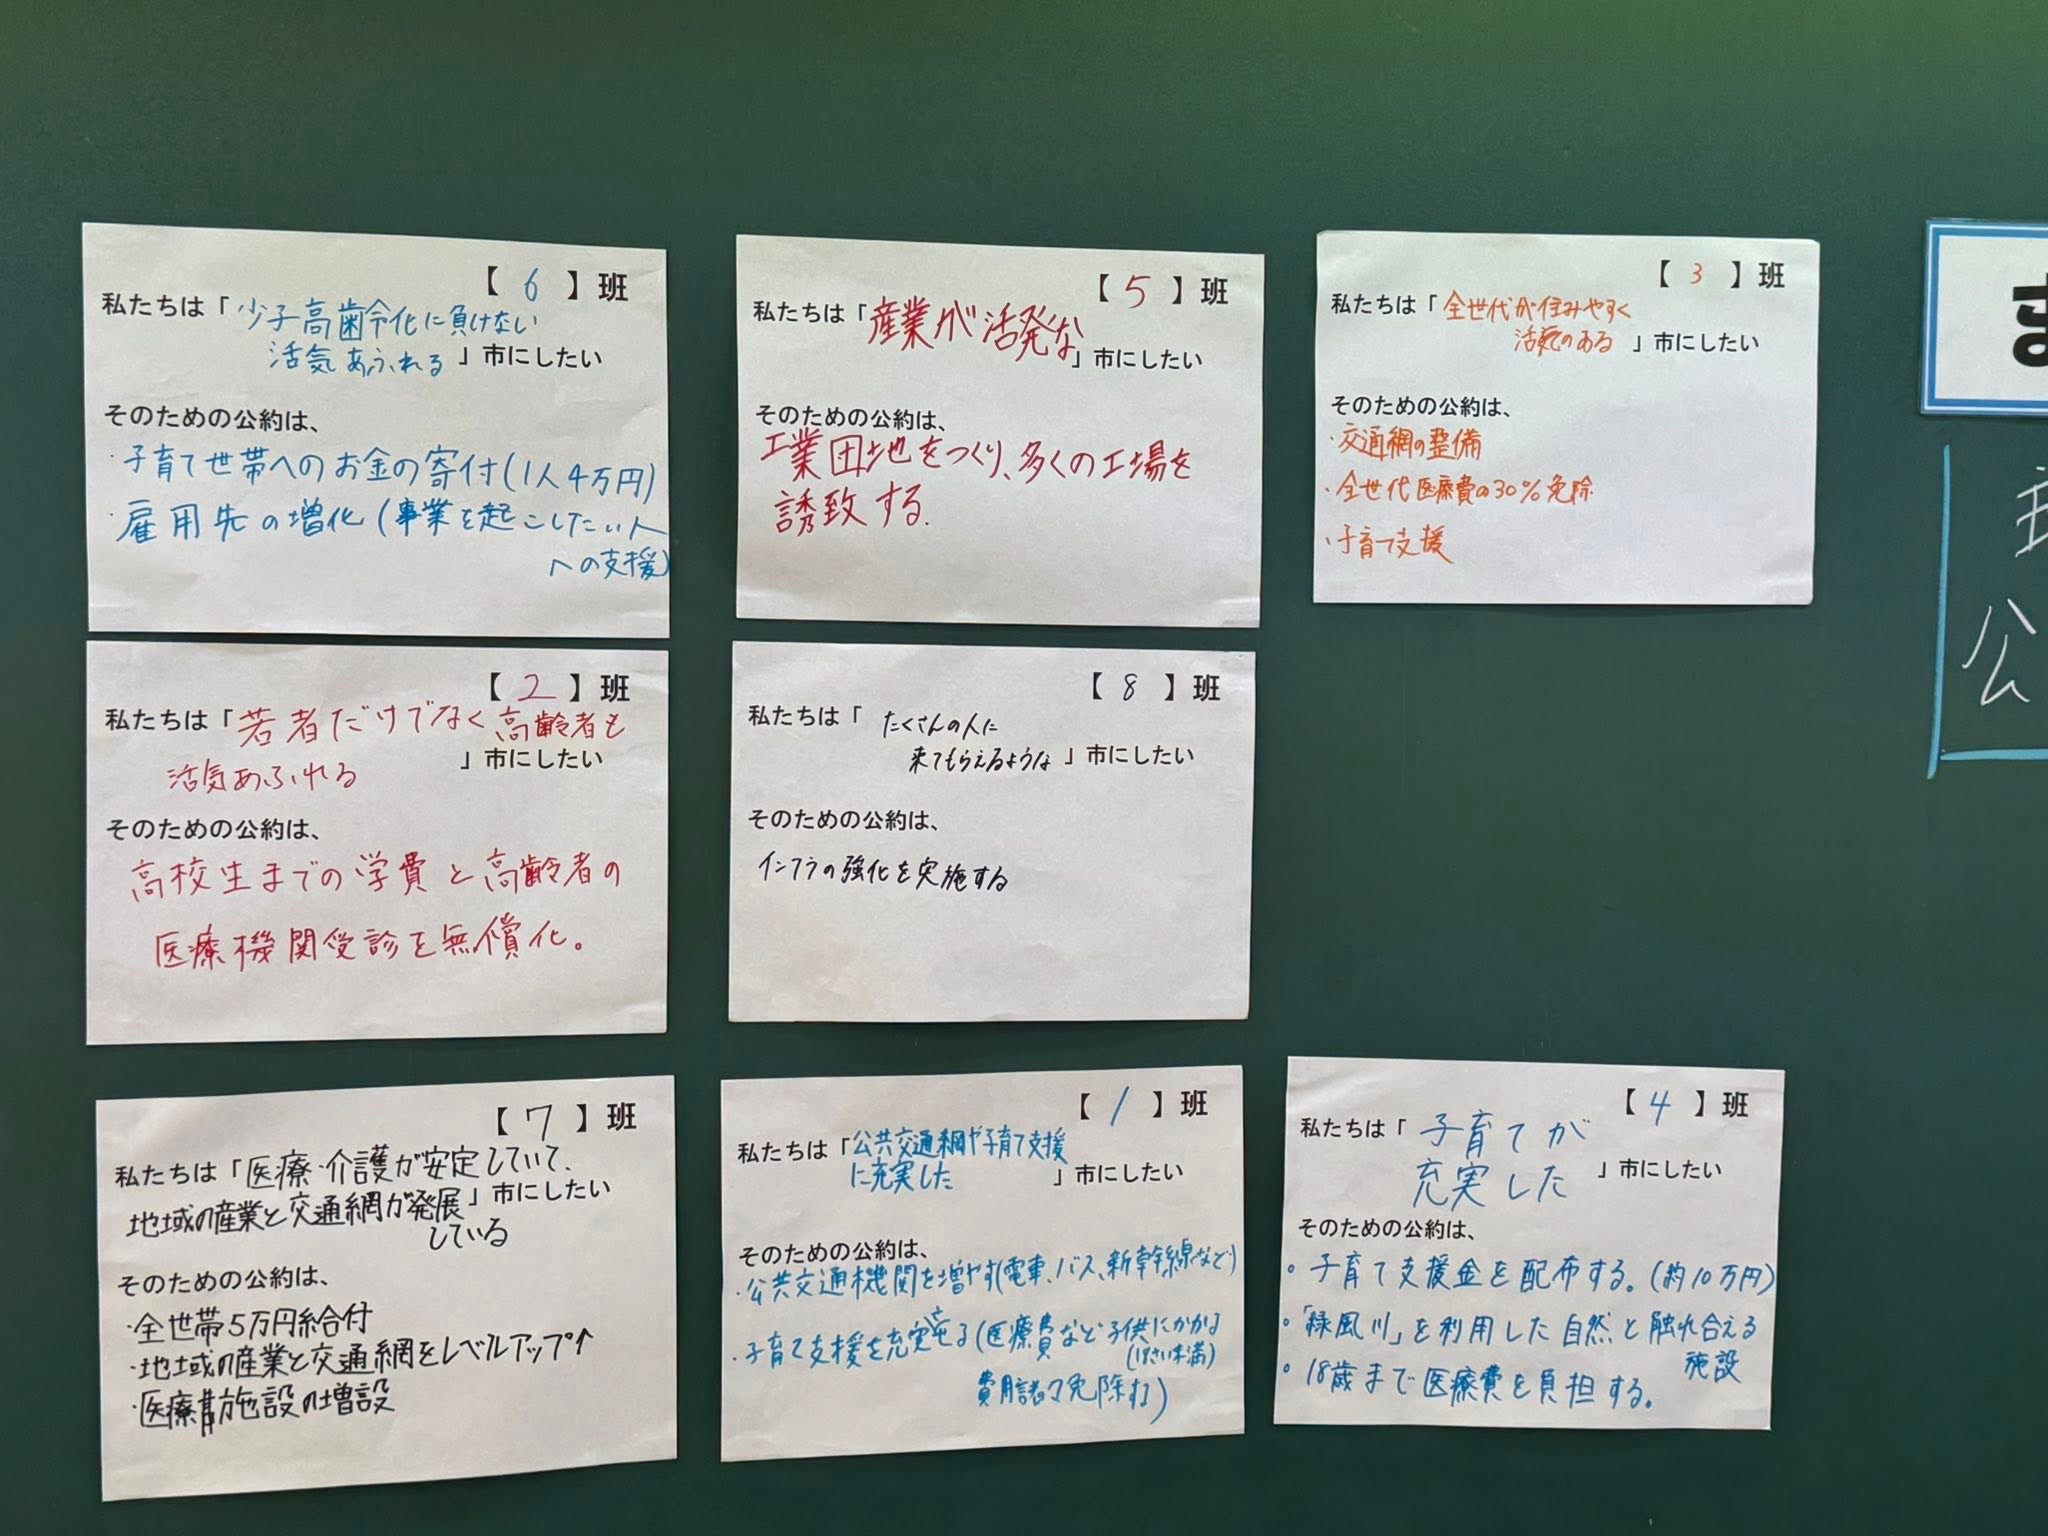 【 6 】班
私たちは「少子高歯令化に負けない
活気あふれる」市にしたい
そのための公約は、
・子育て世帯へのお金の寄付(1人4万円)
・雇用先の増化(事業を起こしたい人
への支援)
【 5 】班
私たちは「産業が活発な
」市にしたい
そのための公約は、
工業団地をつくり、多くの工場を
誘致する.
【 3 】班
私たちは「全世代が住みやすく
活気のある 」市にしたい
そのための公約は、
・交通網の整備
・全世代医療費の30%免除
・子育て支援
【 2 】班
私たちは「若者だけでなく高齢者も
活気あふれる 」市にしたい
そのための公約は、
高校生までの学費と高齢者の
医療機関受診を無償化。
【 8 】班
私たちは「 たくさんの人に
来てもらえるような 」市にしたい
そのための公約は、
インフラの強化を実施する
【 7 】班
私たちは「医療・介護が安定していて、
地域の産業と交通網が発展」市にしたい
している
そのための公約は、
・全世帯5万円給付
・地域の産業と交通網をレベルアップ↑
・医療施設の増設
【 1 】班
私たちは「公共交通網や子育て支援
に充実した 」市にしたい
そのための公約は、
・公共交通機関を増やす(電車、バス、新幹線など)
・子育て支援を充実させる(医療費など子供にかかる
(18さい未満)
費用諸々免除する)
【 4 】班
私たちは「 子育てが
充実した 」市にしたい
そのための公約は、
・子育て支援金を配布する。(約10万円)
・「緑風川」を利用した自然と触れ合える
施設
・18歳まで医療費を負担する。
ま
公